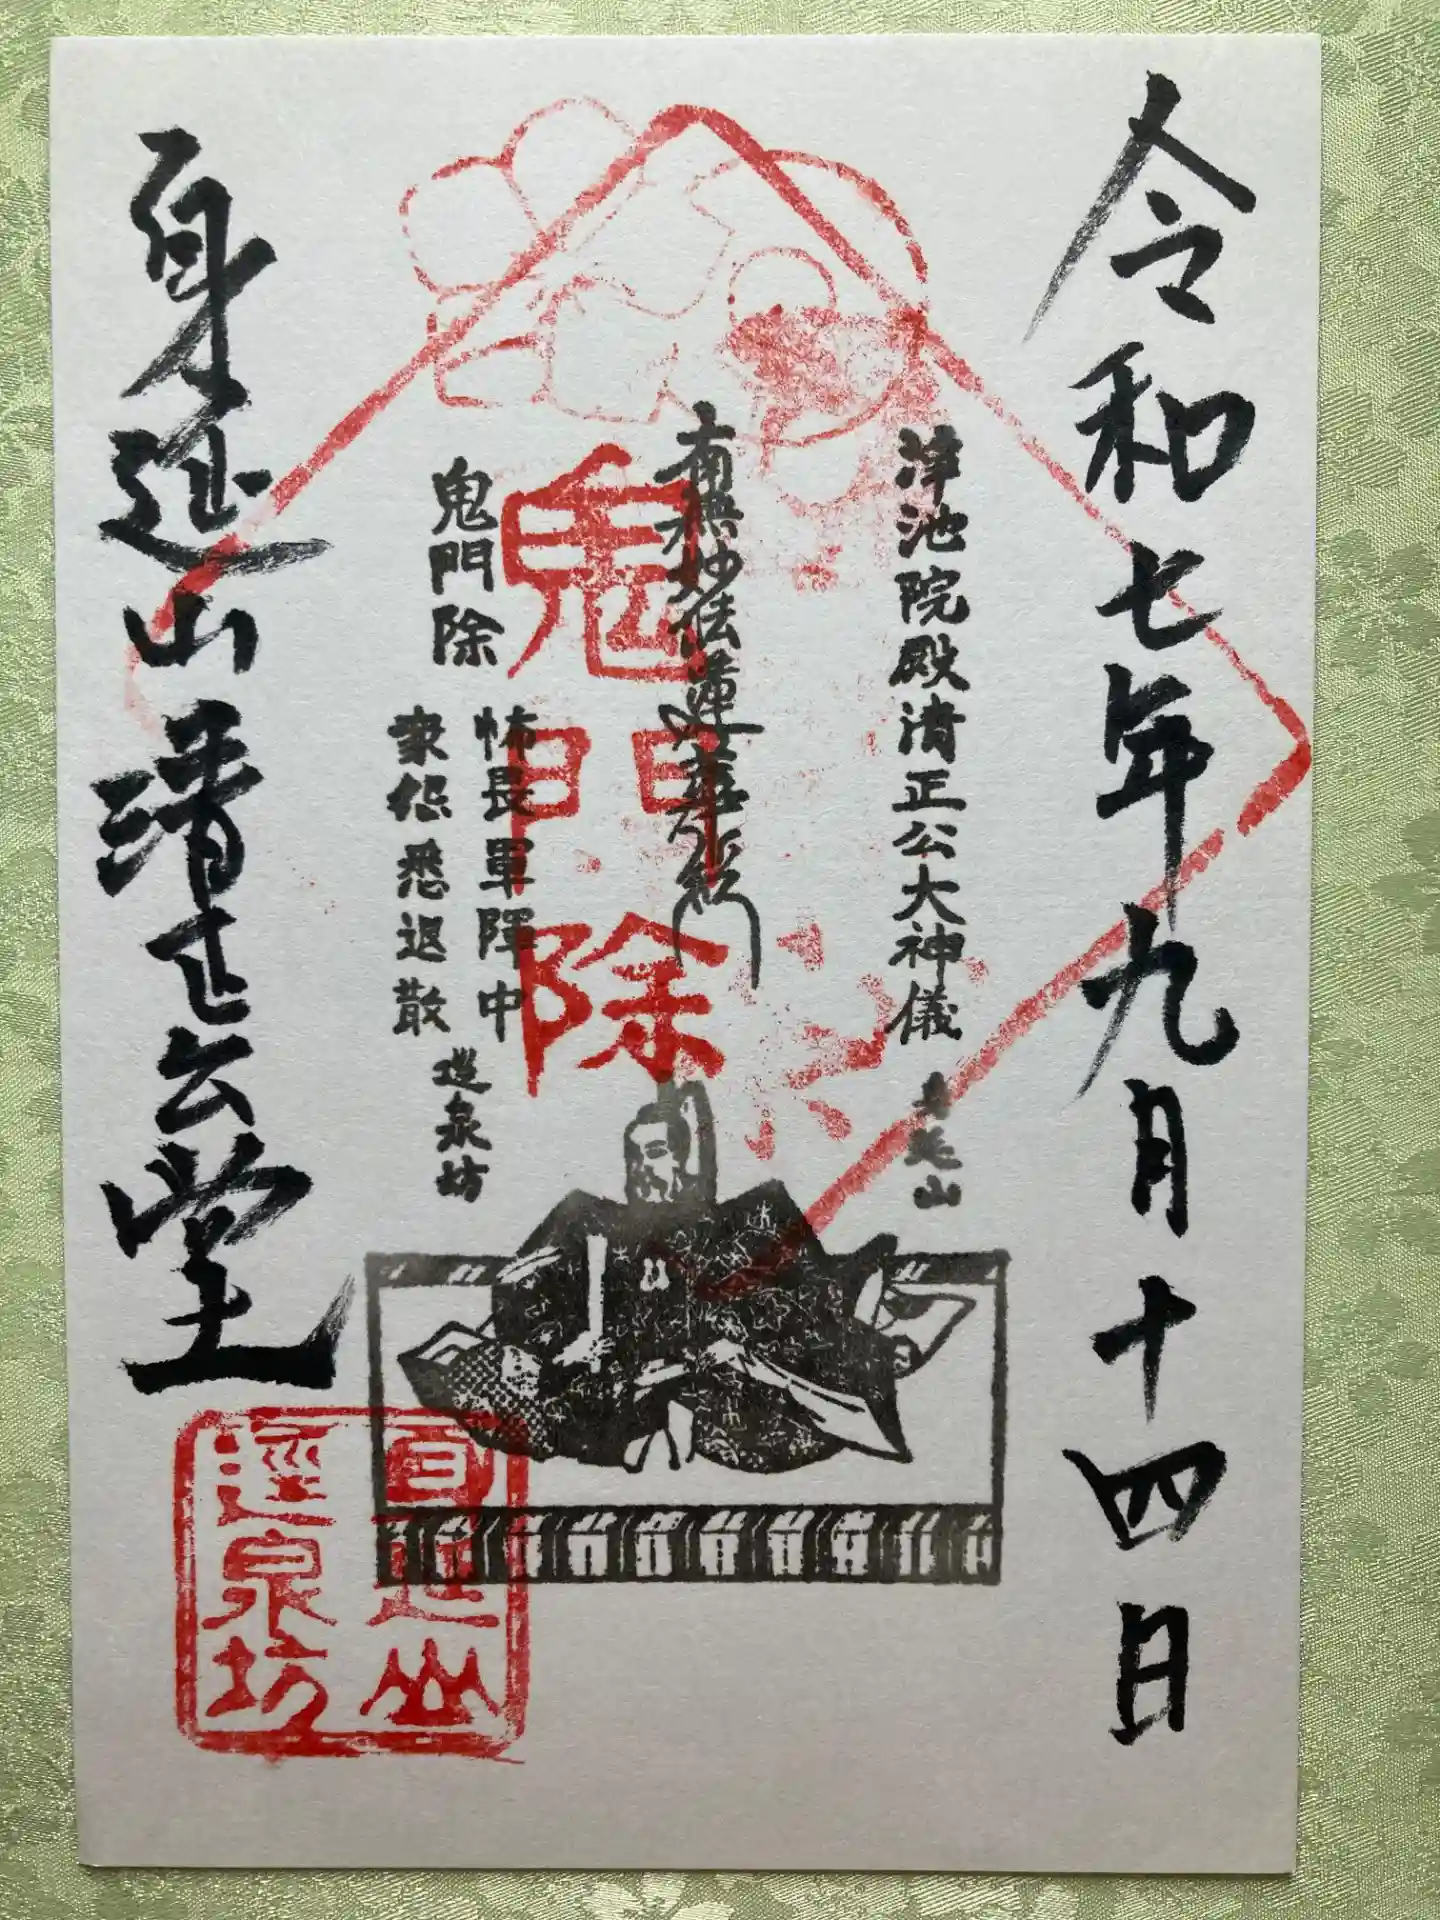 令和七年九月十四日
浄池院殿清正公大神儀
身延山
南無妙法蓮華経
鬼門除
鬼門除
怖畏軍陣中
衆怨悉退散
逕泉坊
身延山清正公堂
身延山
逕泉坊